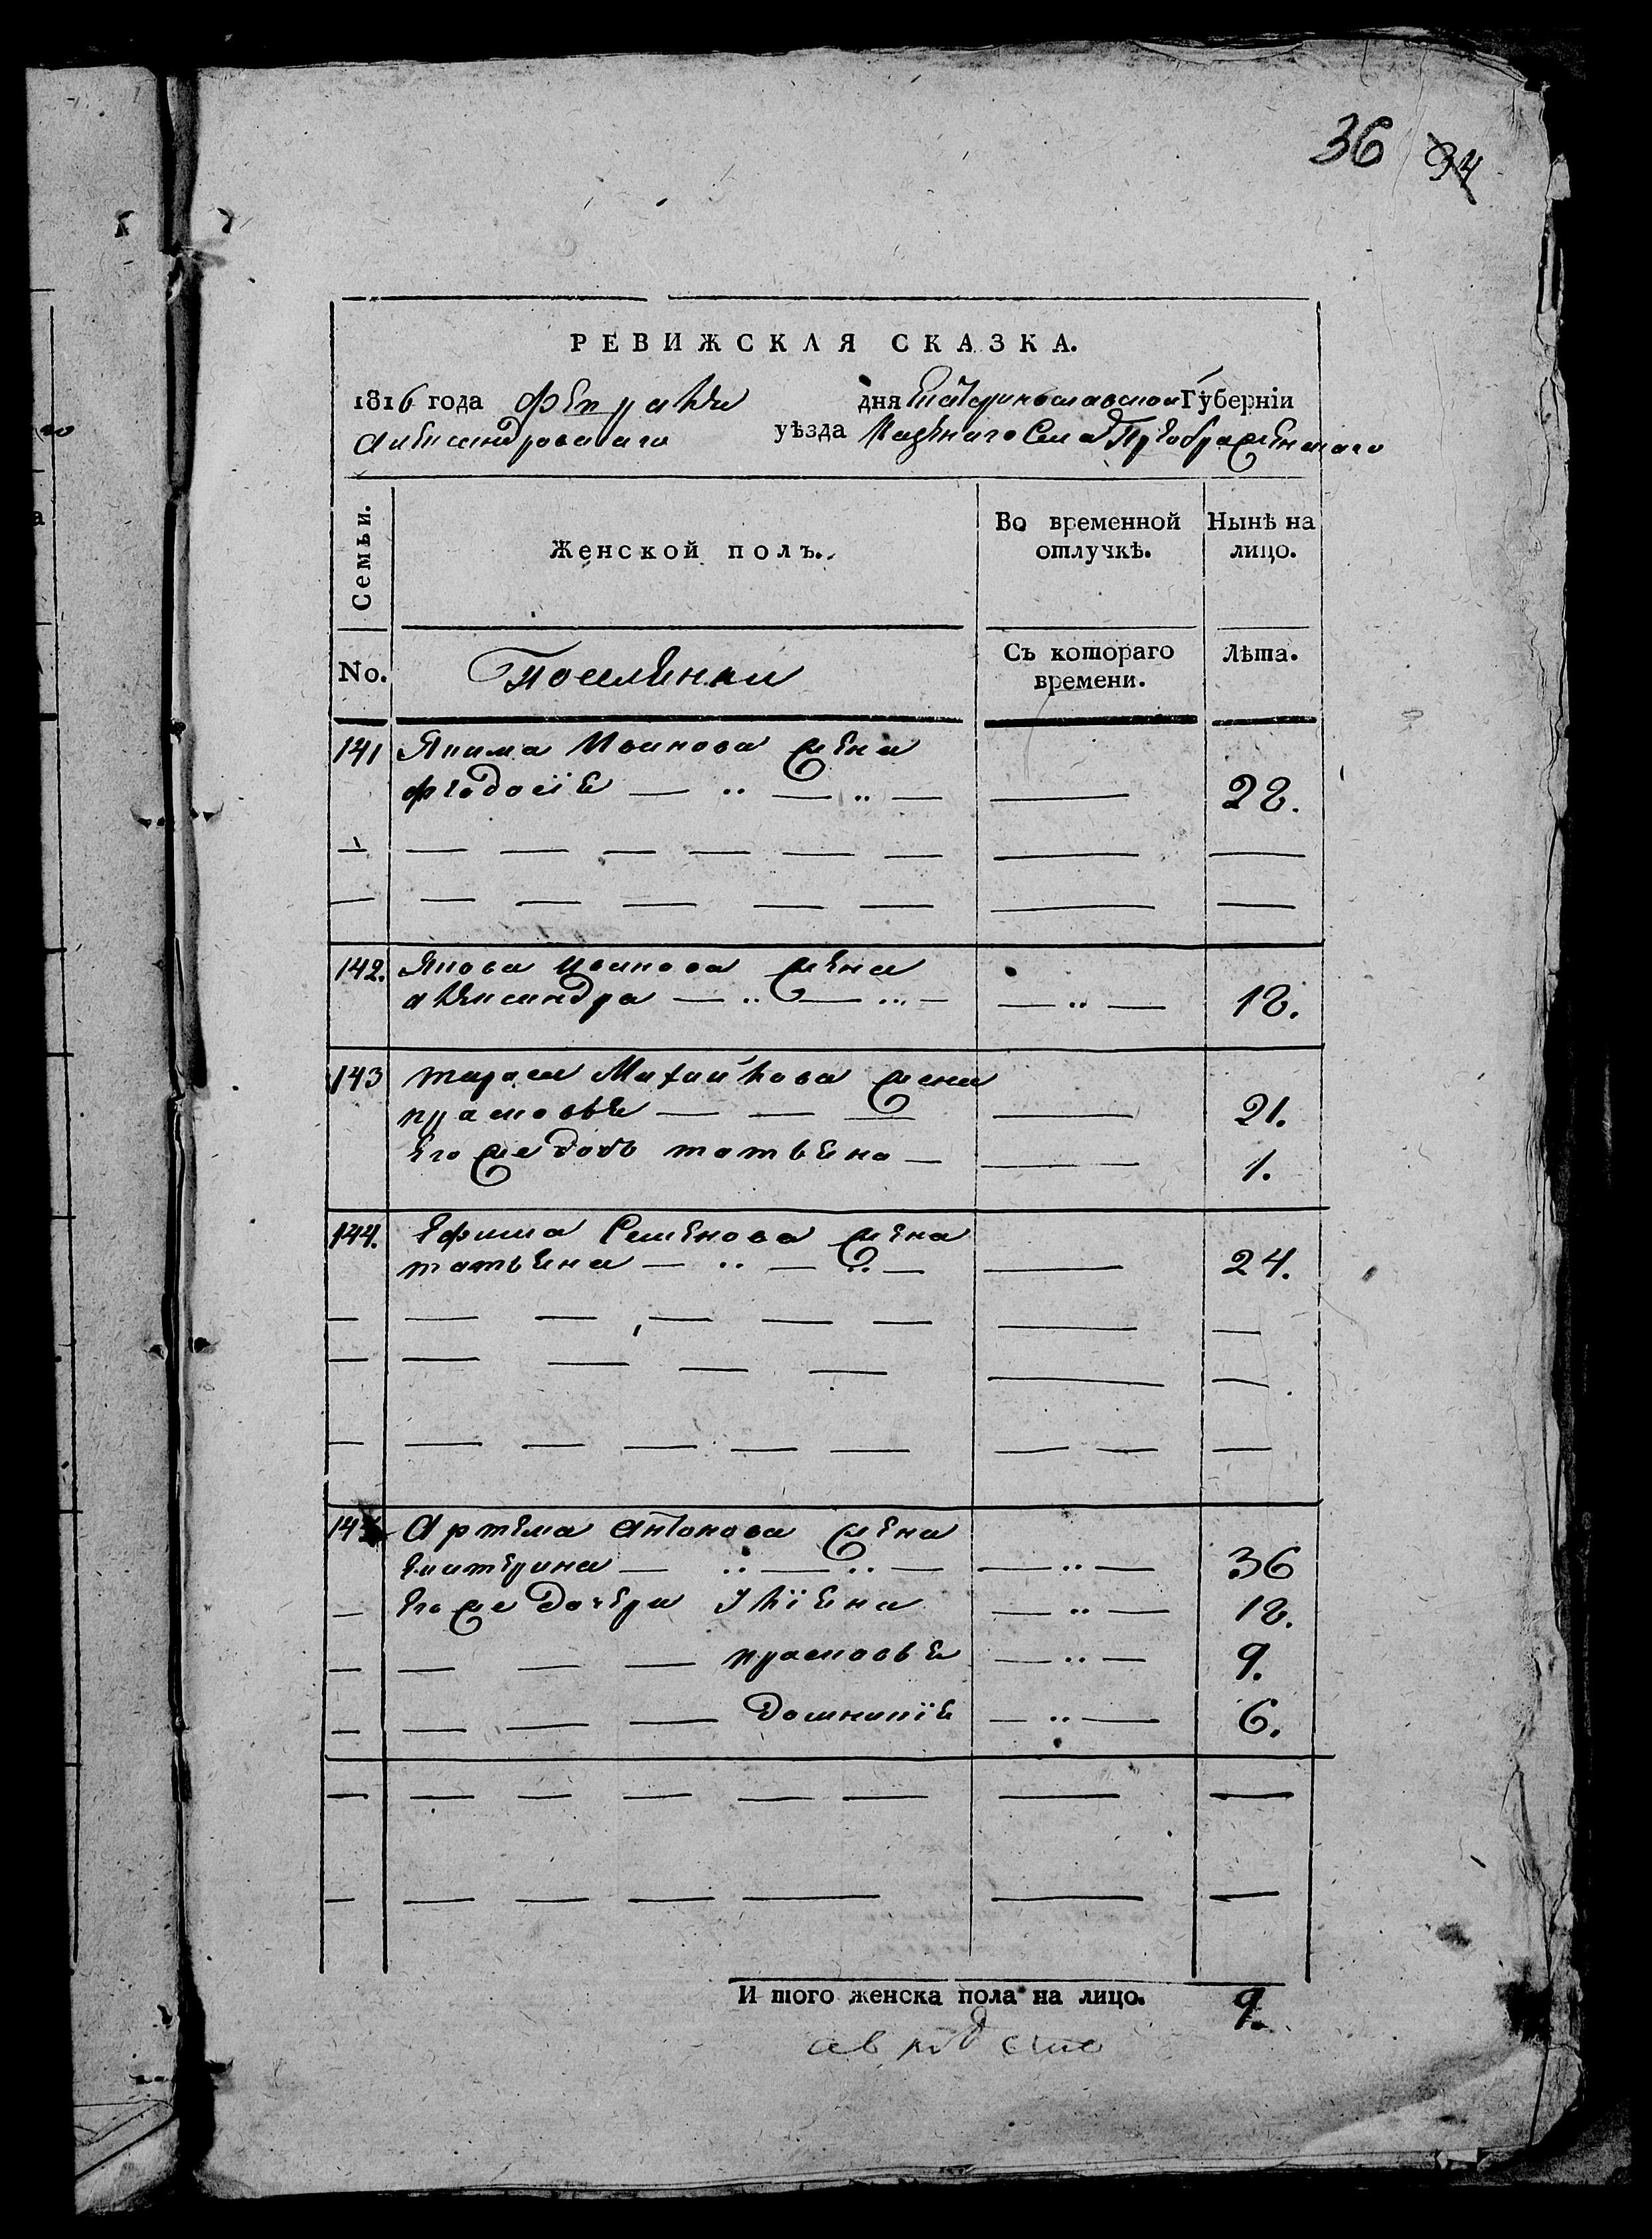 36 34
РЕВИЖСКАЯ СКАЗКА.
1816 года Февраля дня Екатеринославской Губернїи
Александровскаго уѣзда Казенаго Села Преображенскаго
Семьи. Женской полъ. Во временной отлучкѣ. Нынѣ на лицо.
No. Поселянки Съ котораго времени. Лѣта.
141 Якима Иванова жена
феодосїя 28.
142. Якова иванова жена
александра 18.
143 тараса Михайлова жена
прасковья 21.
его же дочь татьяна 1.
144. Ефима Семенова жена
татьяна 24.
Артема антонова жена
Екатерина 36
Его же дочери Улїяна 12.
прасковья 9.
домникїя 6.
И того женска пола на лицо. 9.